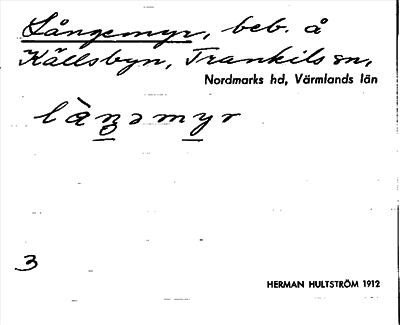 Långemyr, beb. å
Källsbyn, Trankils sn,
Nordmarks hd, Värmlands län
là̀ŋəmyr
3
HERMAN HULTSTRÖM 1912